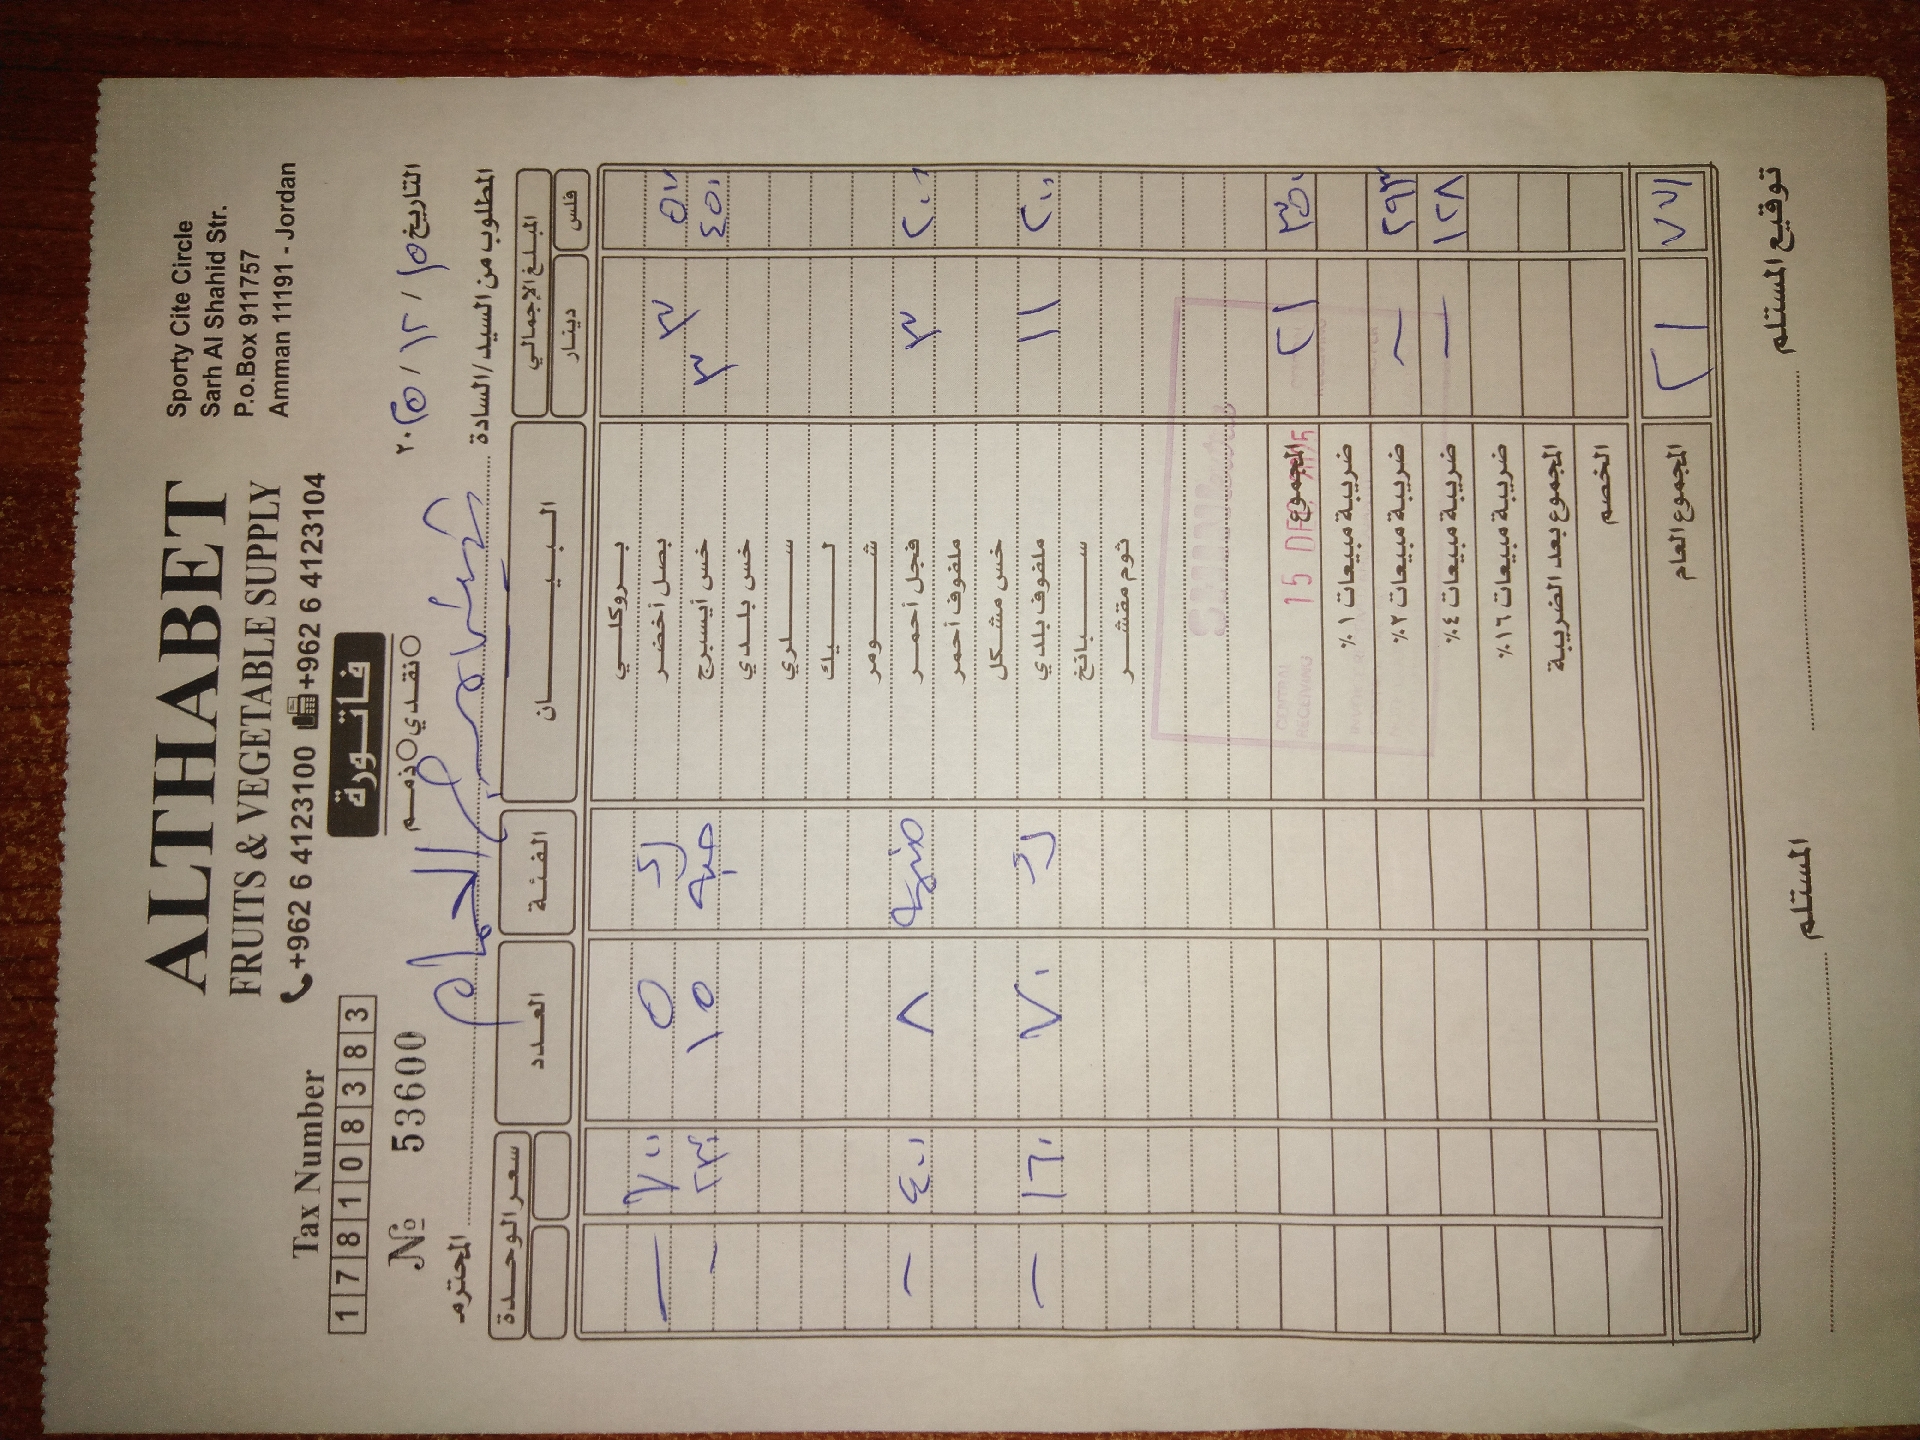 ALTHABET
FRUITS & VEGETABLE SUPPLY
+962 6 4123100 +962 6 4123104
Sporty Cite Circle
Sarh Al Shahid Str.
P.o.Box 911757
Amman 11191 - Jordan
Tax Number
1 7 8 1 0 8 3 8 3
№ 53600
فاتورة
نقدي ذمم
التاريخ ١٥ / ١٢ / ٢٠٢٥
المطلوب من السيد/السادة المحترم
المبلغ الإجمالي البيــــان الفئة العدد سعر الوحدة
فلس دينار
بروكلي
٣ بصل أخضر ٥ ٧٠٠ —
٤٥٠ ٣ خس أيسبرج حبة ١٥ ٢٣٠ —
خس بلدي
سلري
ليك
شومر
٢٠٠ ٣ فجل أحمر ٨ ٤٠٠ —
ملفوف أحمر
خس مشكل
٢٠٠ ١١ ملفوف بلدي ٧٠ ١٦٠ —
سبانخ
ثوم مقشر
٣٥٠ ٢١ المجموع
ضريبة مبيعات ١%
٢٩٣ — ضريبة مبيعات ٢%
١٢٨ — ضريبة مبيعات ٤%
ضريبة مبيعات ١٦%
المجموع بعد الضريبة
الخصم
٧٧١ ٢١ المجموع العام
CENTRAL
RECEIVING
15 DEC 2025
توقيع المستلم المستلم